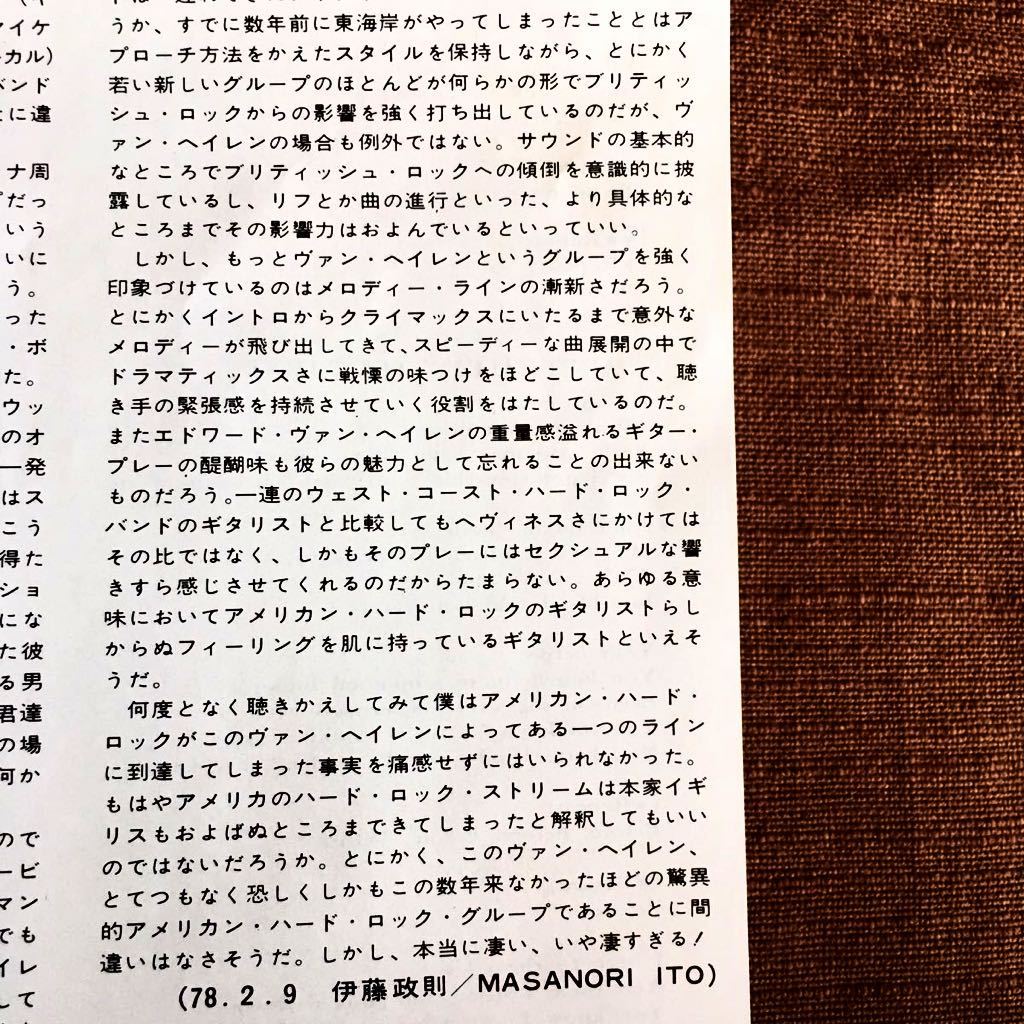 ァイケ
カル)
バンド
に違
ナ周
だっ
いう
いに
う。
った
・ボ
た。
ウッ
のオ
一発
はス
こう
得た
ショ
にな
た彼
る男
君達
の場
何か
ので
ービ
マン
でも
イレ
して
うか、すでに数年前に東海岸がやってしまったこととはア
プローチ方法をかえたスタイルを保持しながら、とにかく
若い新しいグループのほとんどが何らかの形でブリティッ
シュ・ロックからの影響を強く打ち出しているのだが、ヴ
ァン・ヘイレンの場合も例外ではない。サウンドの基本的
なところでブリティッシュ・ロックへの傾倒を意識的に披
露しているし、リフとか曲の進行といった、より具体的な
ところまでその影響力はおよんでいるといっていい。
しかし、もっとヴァン・ヘイレンというグループを強く
印象づけているのはメロディー・ラインの漸新さだろう。
とにかくイントロからクライマックスにいたるまで意外な
メロディーが飛び出してきて、スピーディーな曲展開の中で
ドラマティックスさに戦慄の味つけをほどこしていて、聴
き手の緊張感を持続させていく役割をはたしているのだ。
またエドワード・ヴァン・ヘイレンの重量感溢れるギター・
プレーの醍醐味も彼らの魅力として忘れることの出来ない
ものだろう。一連のウェスト・コースト・ハード・ロック・
バンドのギタリストと比較してもヘヴィネスさにかけては
その比ではなく、しかもそのプレーにはセクシュアルな響
きすら感じさせてくれるのだからたまらない。あらゆる意
味においてアメリカン・ハード・ロックのギタリストらし
からぬフィーリングを肌に持っているギタリストといえそ
うだ。
何度となく聴きかえしてみて僕はアメリカン・ハード・
ロックがこのヴァン・ヘイレンによってある一つのライン
に到達してしまった事実を痛感せずにはいられなかった。
もはやアメリカのハード・ロック・ストリームは本家イギ
リスもおよばぬところまできてしまったと解釈してもいい
のではないだろうか。とにかく、このヴァン・ヘイレン、
とてつもなく恐しくしかもこの数年来なかったほどの驚異
的アメリカン・ハード・ロック・グループであることに間
違いはなさそうだ。しかし、本当に凄い、いや凄すぎる!
(78.2.9 伊藤政則/MASANORI ITO)